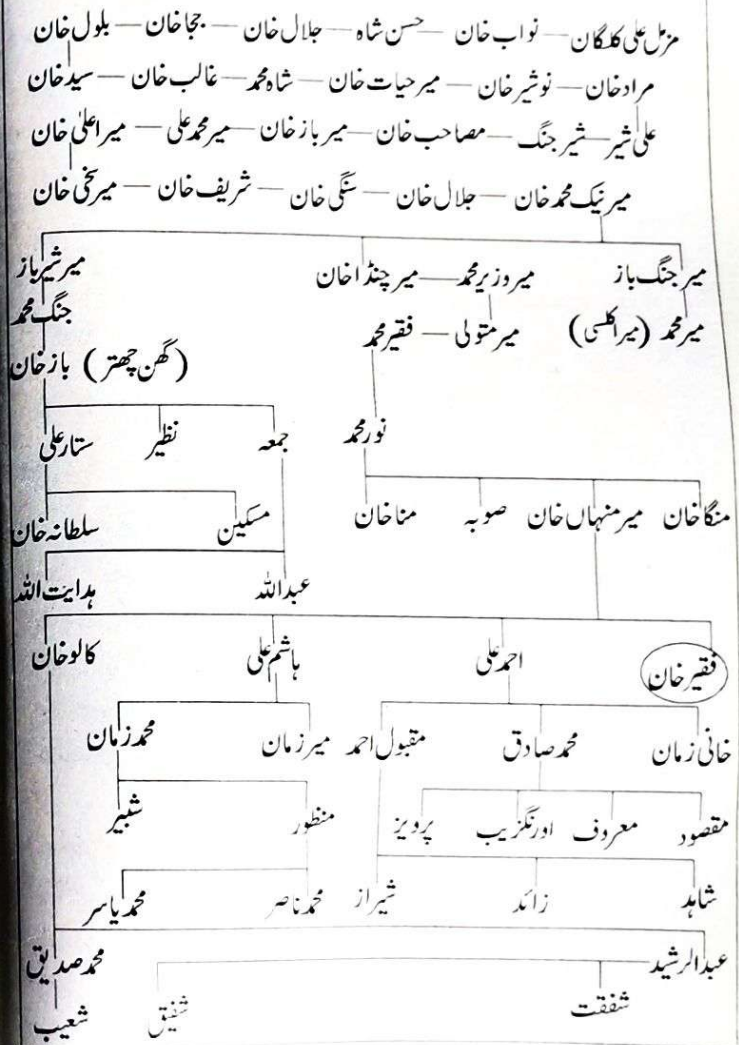 مزمل علی کلگان — نواب خان — حسن شاہ — جلال خان — ججا خان — بلول خان
مراد خان — نوشیر خان — میر حیات خان — شاہ محمد — غالب خان — سید خان
علی شیر — شیر جنگ — مصاحب خان — میر باز خان — میر محمد علی — میر اعلیٰ خان
میر نیک محمد خان — جلال خان — سنگی خان — شریف خان — میر سخی خان
میر جنگ باز میر وزیر محمد — میر چنڈا خان میر شیر باز
میر محمد (میرا کلسی) میر متولی — فقیر محمد جنگ محمد
(گھن چھتر) باز خان
نور محمد جمعہ نظیر ستار علی
منگا خان میر منہاں خان صوبہ منا خان مسکین سلطانہ خان
عبداللہ ہدایت اللہ
فقیر خان احمد علی ہاشم علی کالو خان
خانی زمان محمد صادق مقبول احمد میر زمان محمد زمان
مقصود معروف اورنگزیب پرویز منظور شبیر
شاہد زائد شیراز محمد ناصر محمد یاسر
عبدالرشید محمد صدیق
شفقت شفیق شعیب